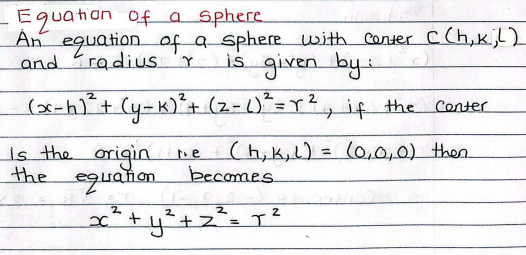 Equation of a sphere
An equation of a sphere with center C (h,k,l)
and radius r is given by:
(x-h)² + (y-k)² + (z-l)² = r², if the center
is the origin i.e (h,k,l) = (0,0,0) then
the equation becomes
x² + y² + z² = r²